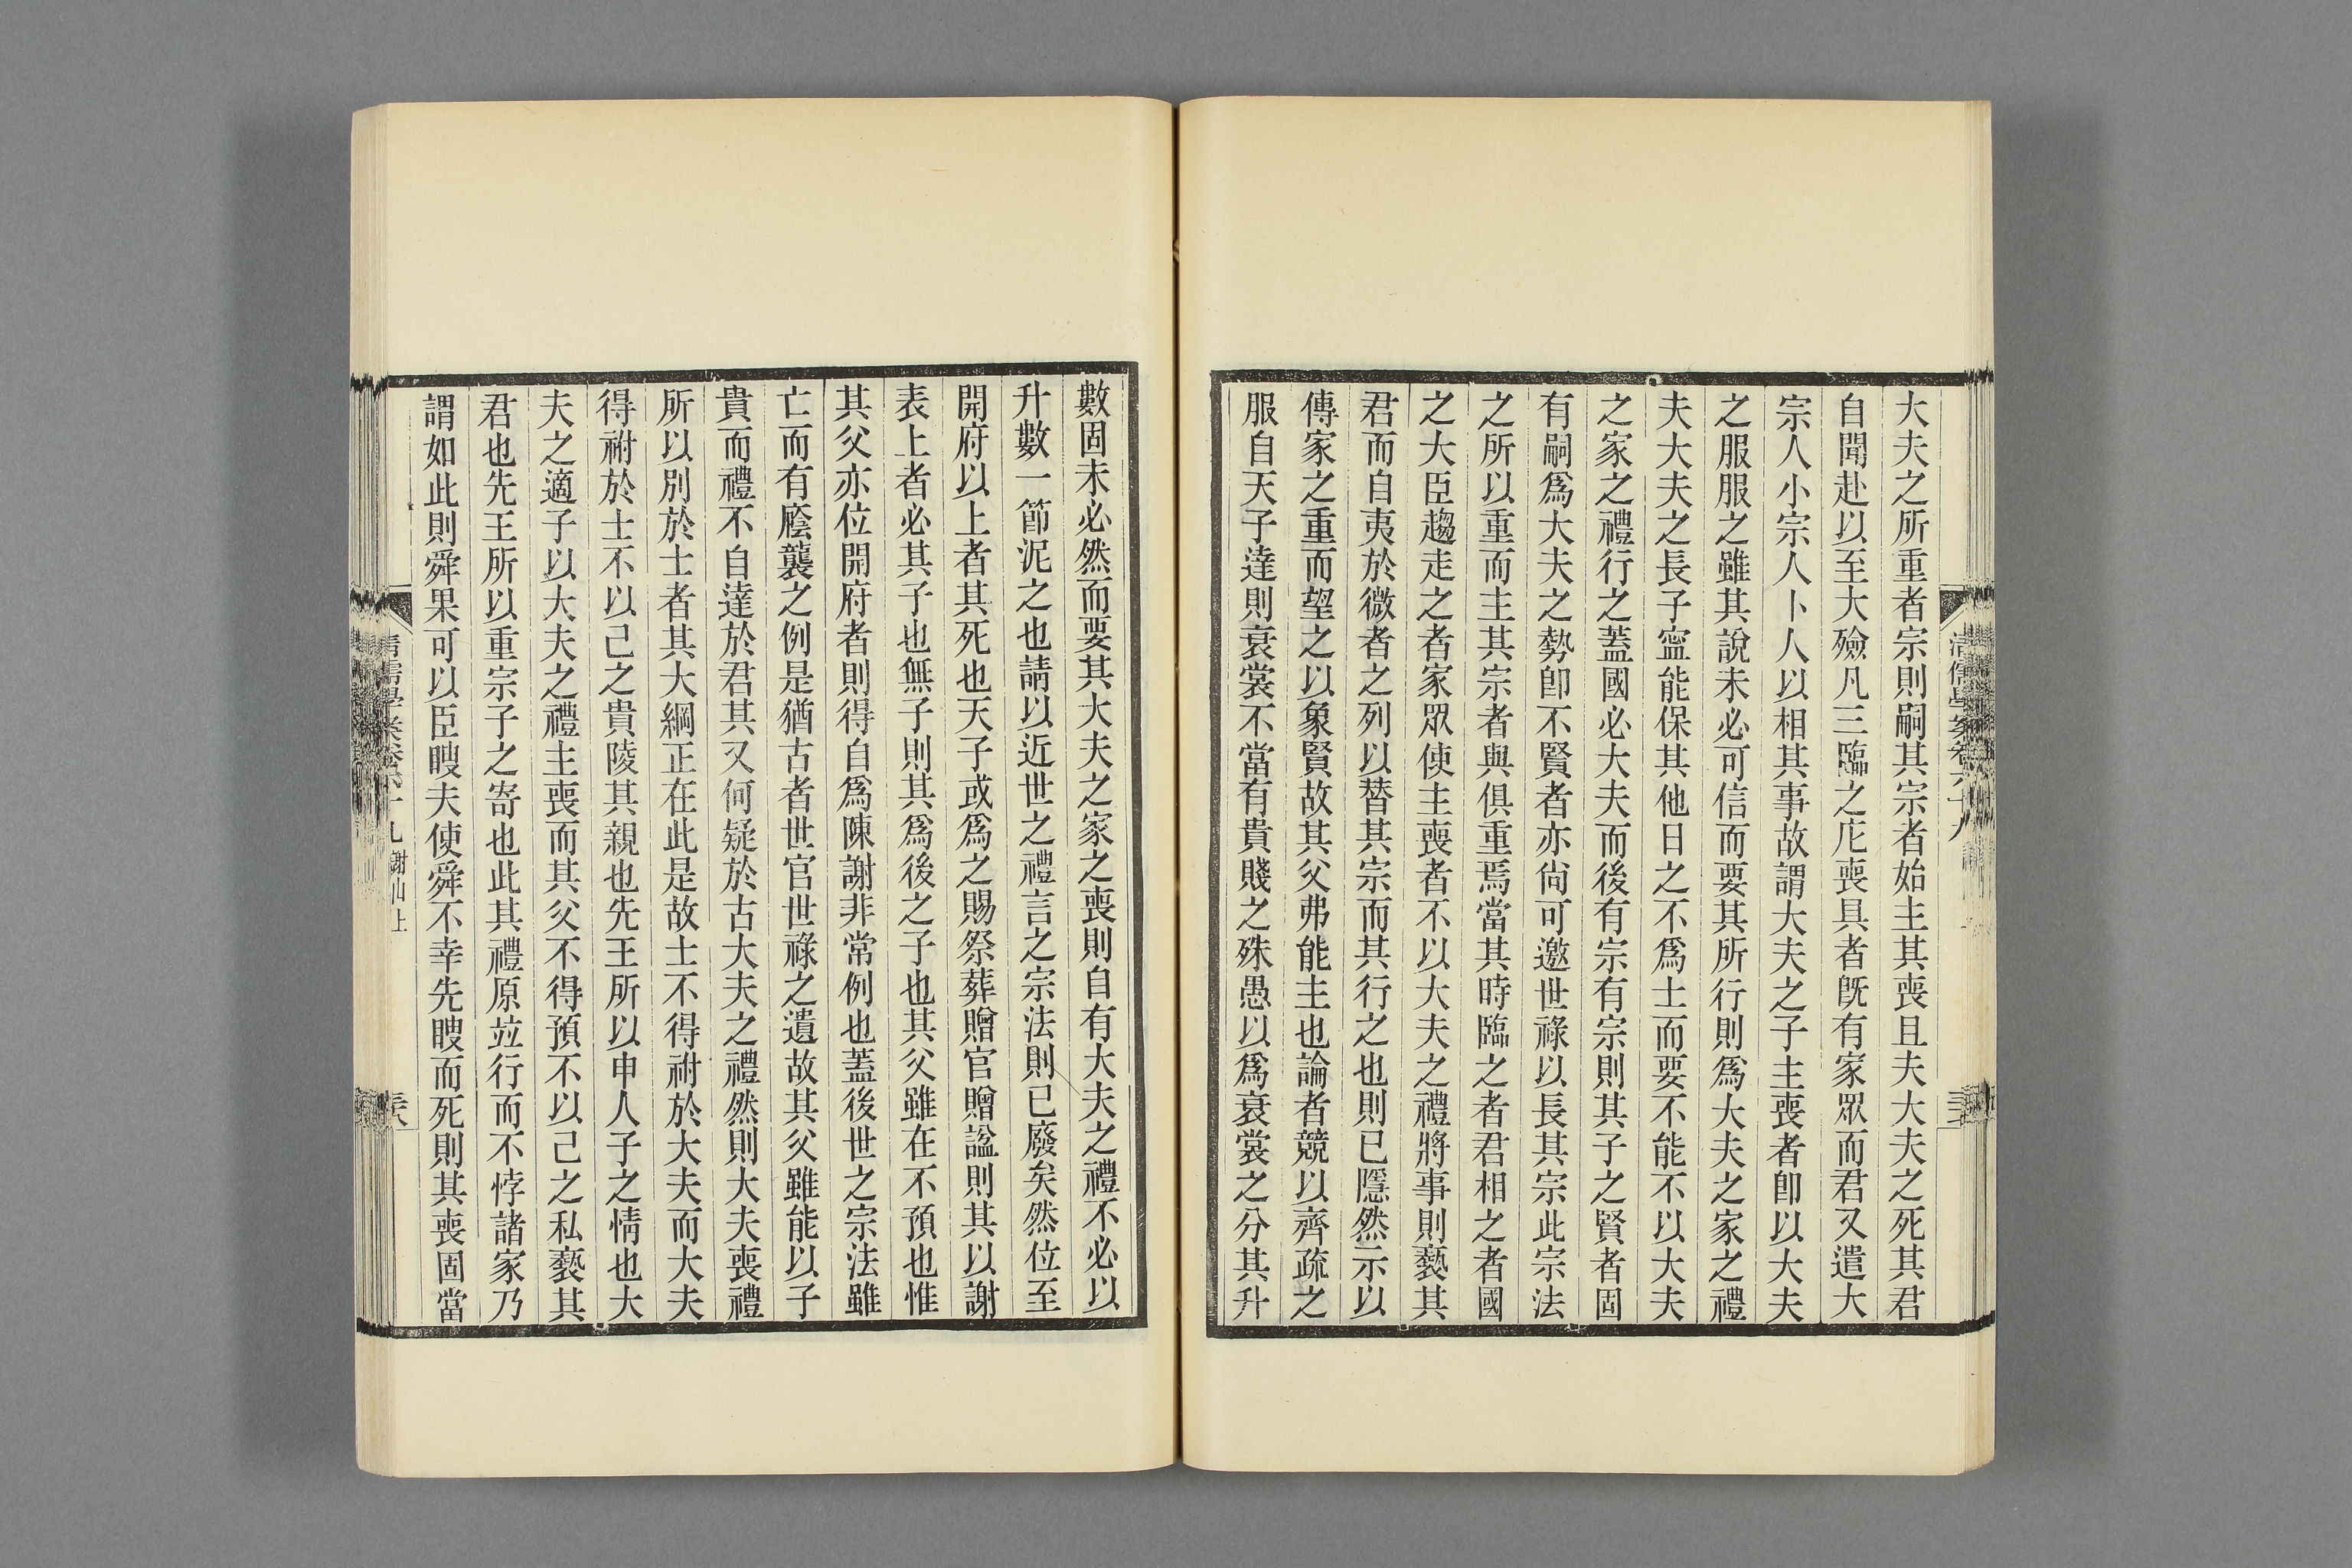 大夫之所重者宗則嗣其宗者始主其喪且夫大夫之死其君
自聞赴以至大殮凡三臨之庀喪具者旣有家眾而君又遣大
宗人小宗人卜人以相其事故謂大夫之子主喪者卽以大夫
之服服之雖其說未必可信而要其所行則爲大夫之家之禮
夫大夫之長子寧能保其他日之不爲士而要不能不以大夫
之家之禮行之蓋國必大夫而後有宗有宗則其子之賢者固
有嗣爲大夫之勢卽不賢者亦尙可邀世祿以長其宗此宗法
之所以重而主其宗者與俱重焉當其時臨之者君相之者國
之大臣趨走之者家眾使主喪者不以大夫之禮將事則褻其
君而自夷於微者之列以替其宗而其行之也則已隱然示以
傳家之重而望之以象賢故其父弗能主也論者競以齊疏之
服自天子達則衰裳不當有貴賤之殊愚以爲衰裳之分其升
數固未必然而要其大夫之家之喪則自有大夫之禮不必以
升數一節泥之也請以近世之禮言之宗法則已廢矣然位至
開府以上者其死也天子或爲之賜祭葬贈官贈諡則其以謝
表上者必其子也無子則其爲後之子也其父雖在不預也惟
其父亦位開府者則得自爲陳謝非常例也蓋後世之宗法雖
亡而有廕襲之例是猶古者世官世祿之遺故其父雖能以子
貴而禮不自達於君其又何疑於古大夫之禮然則大夫喪禮
所以別於士者其大綱正在此是故士不得祔於大夫而大夫
得祔於士不以己之貴陵其親也先王所以申人子之情也大
夫之適子以大夫之禮主喪而其父不得預不以己之私褻其
君也先王所以重宗子之寄也此其禮原竝行而不悖諸家乃
謂如此則舜果可以臣瞍夫使舜不幸先瞍而死則其喪固當